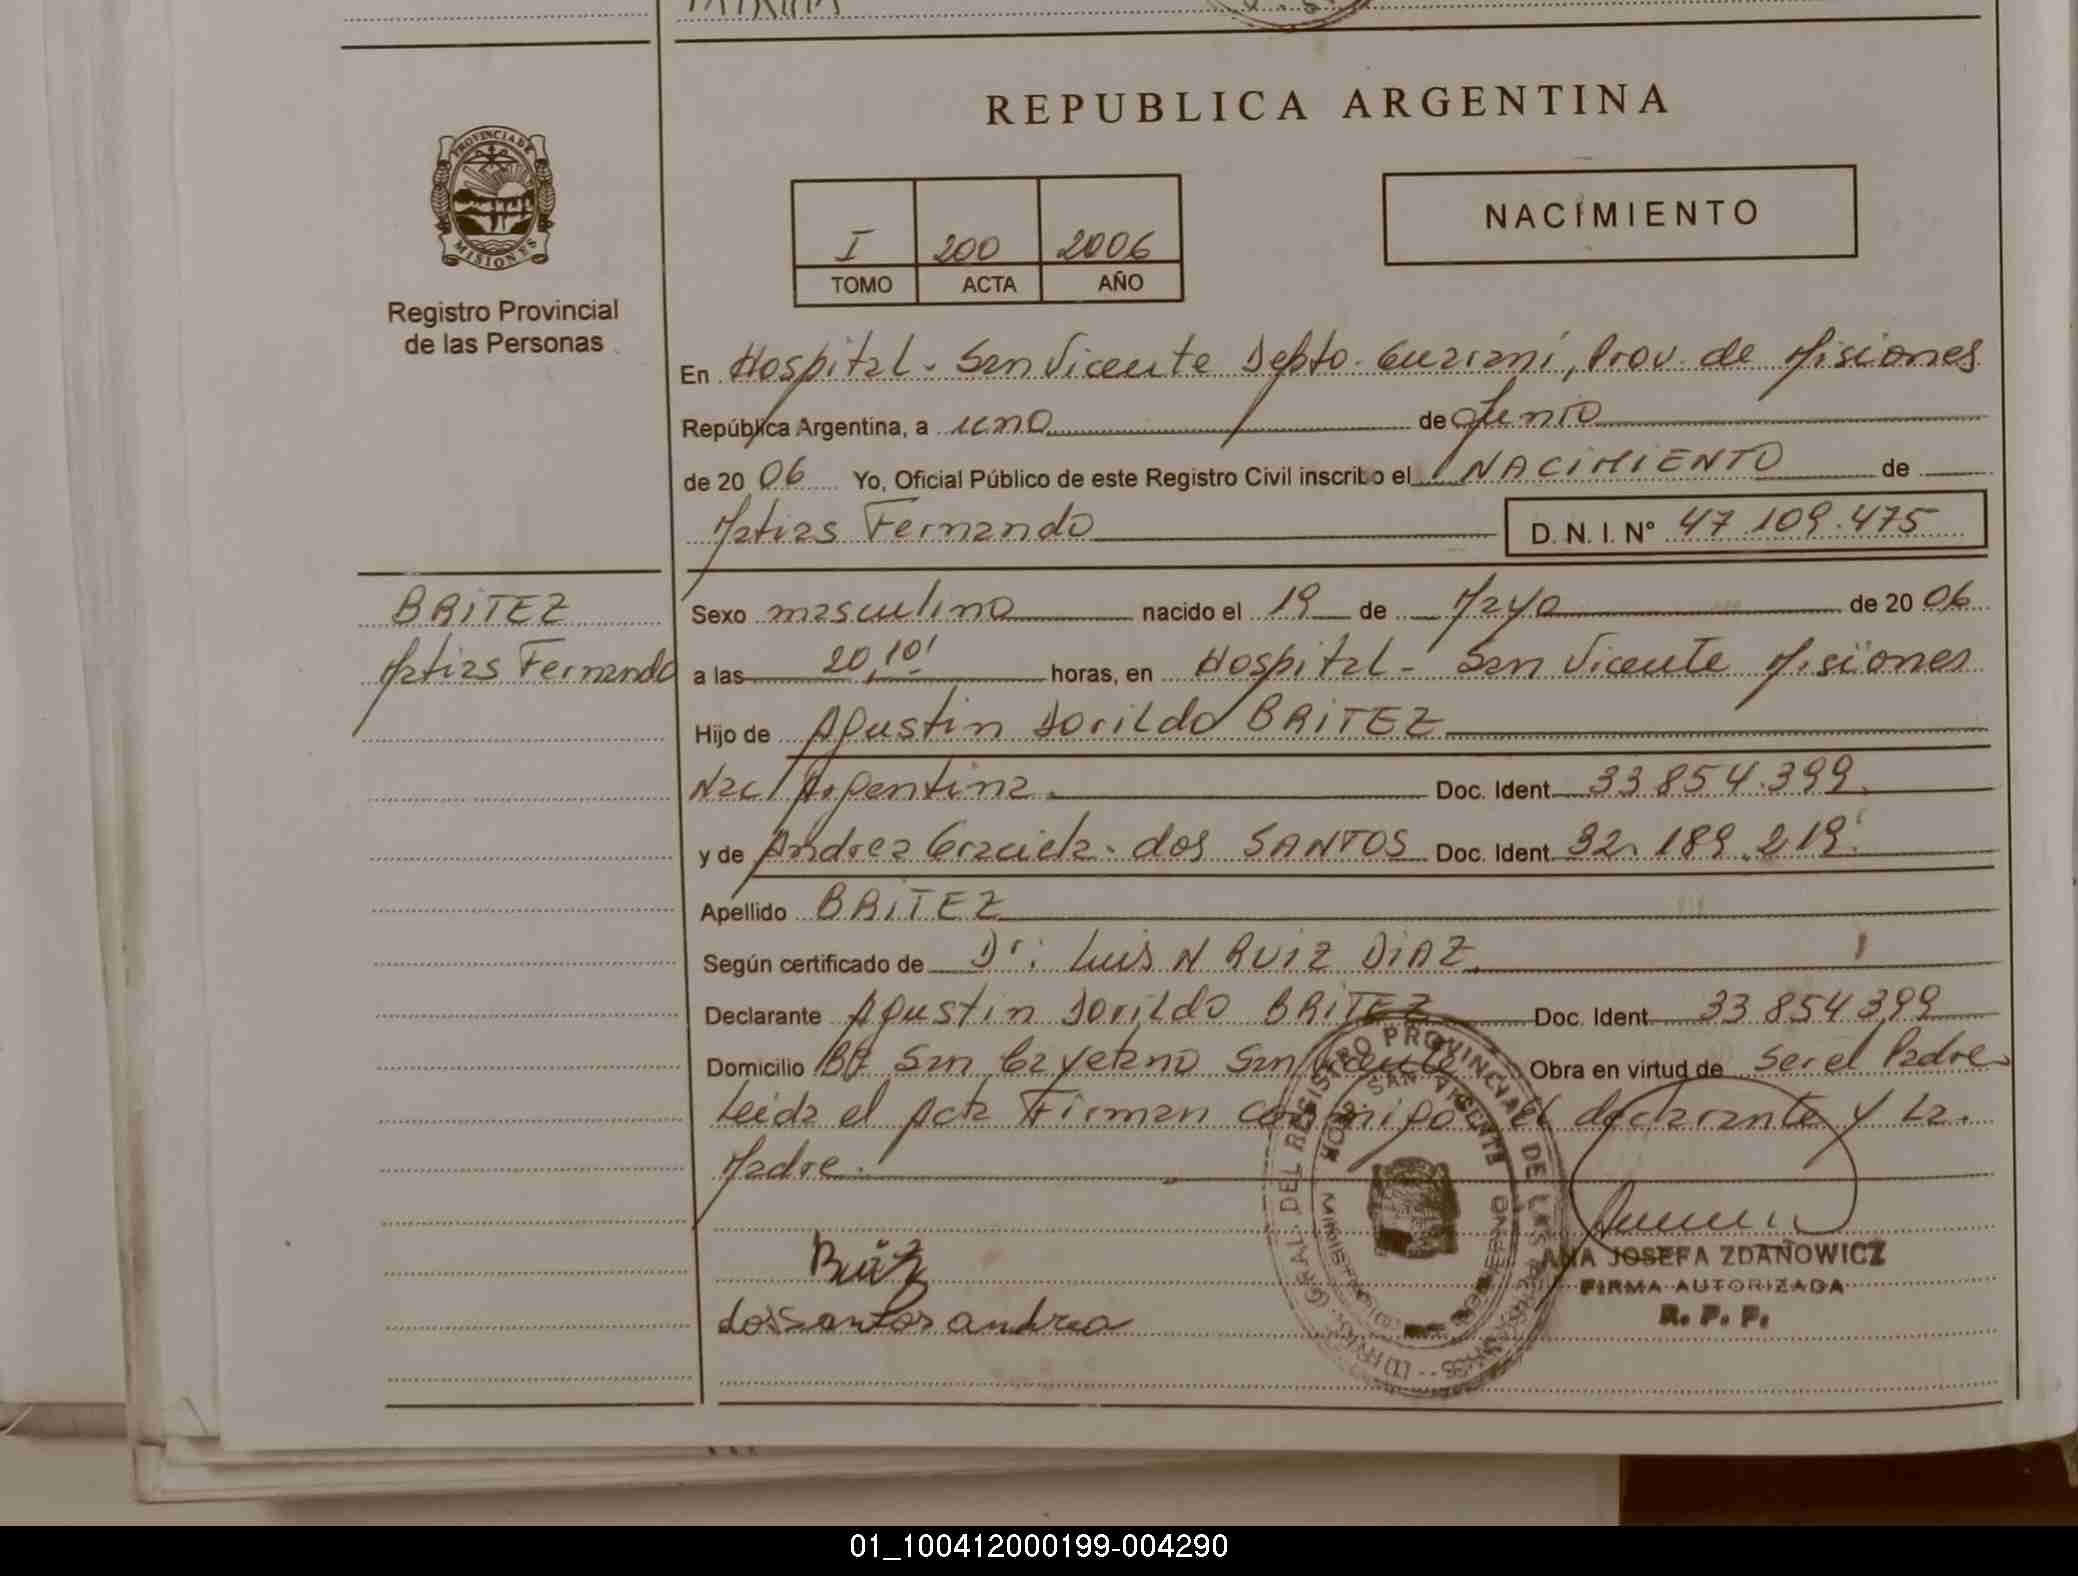 REPUBLICA ARGENTINA
PROVINCIA DE MISIONES
Registro Provincial
de las Personas
NACIMIENTO
I 200 2006
TOMO ACTA AÑO
En Hospital - San Vicente Depto. Guarani, Prov. de Misiones
República Argentina, a uno de Junio
de 2006 Yo, Oficial Público de este Registro Civil inscribo el NACIMIENTO de
Matias Fernando D. N. I. N° 47.109.475
BRITEZ
Matias Fernando
Sexo masculino nacido el 19 de Mayo de 2006
a las 20,10' horas, en Hospital - San Vicente Misiones
Hijo de Agustin Dorildo BRITEZ
Nac Argentina. Doc. Ident. 33 854.399.
y de Andrea Graciela. dos SANTOS Doc. Ident. 32.189.219.
Apellido BRITEZ
Según certificado de Dr: Luis N RUIZ DIAZ
Declarante Agustin Dorildo BRITEZ Doc. Ident. 33 854 399
Domicilio Bº San Cayetano San Vicente Obra en virtud de Ser el Padre
Leida el Acta Firman conmigo el declarante y La.
Madre.
dos santos andrea
DEL REGISTRO PROVINCIAL DE LAS
HOSP. SAN VICENTE
ANA JOSEFA ZDANOWICZ
FIRMA AUTORIZADA
R. P. P.
01_100412000199-004290